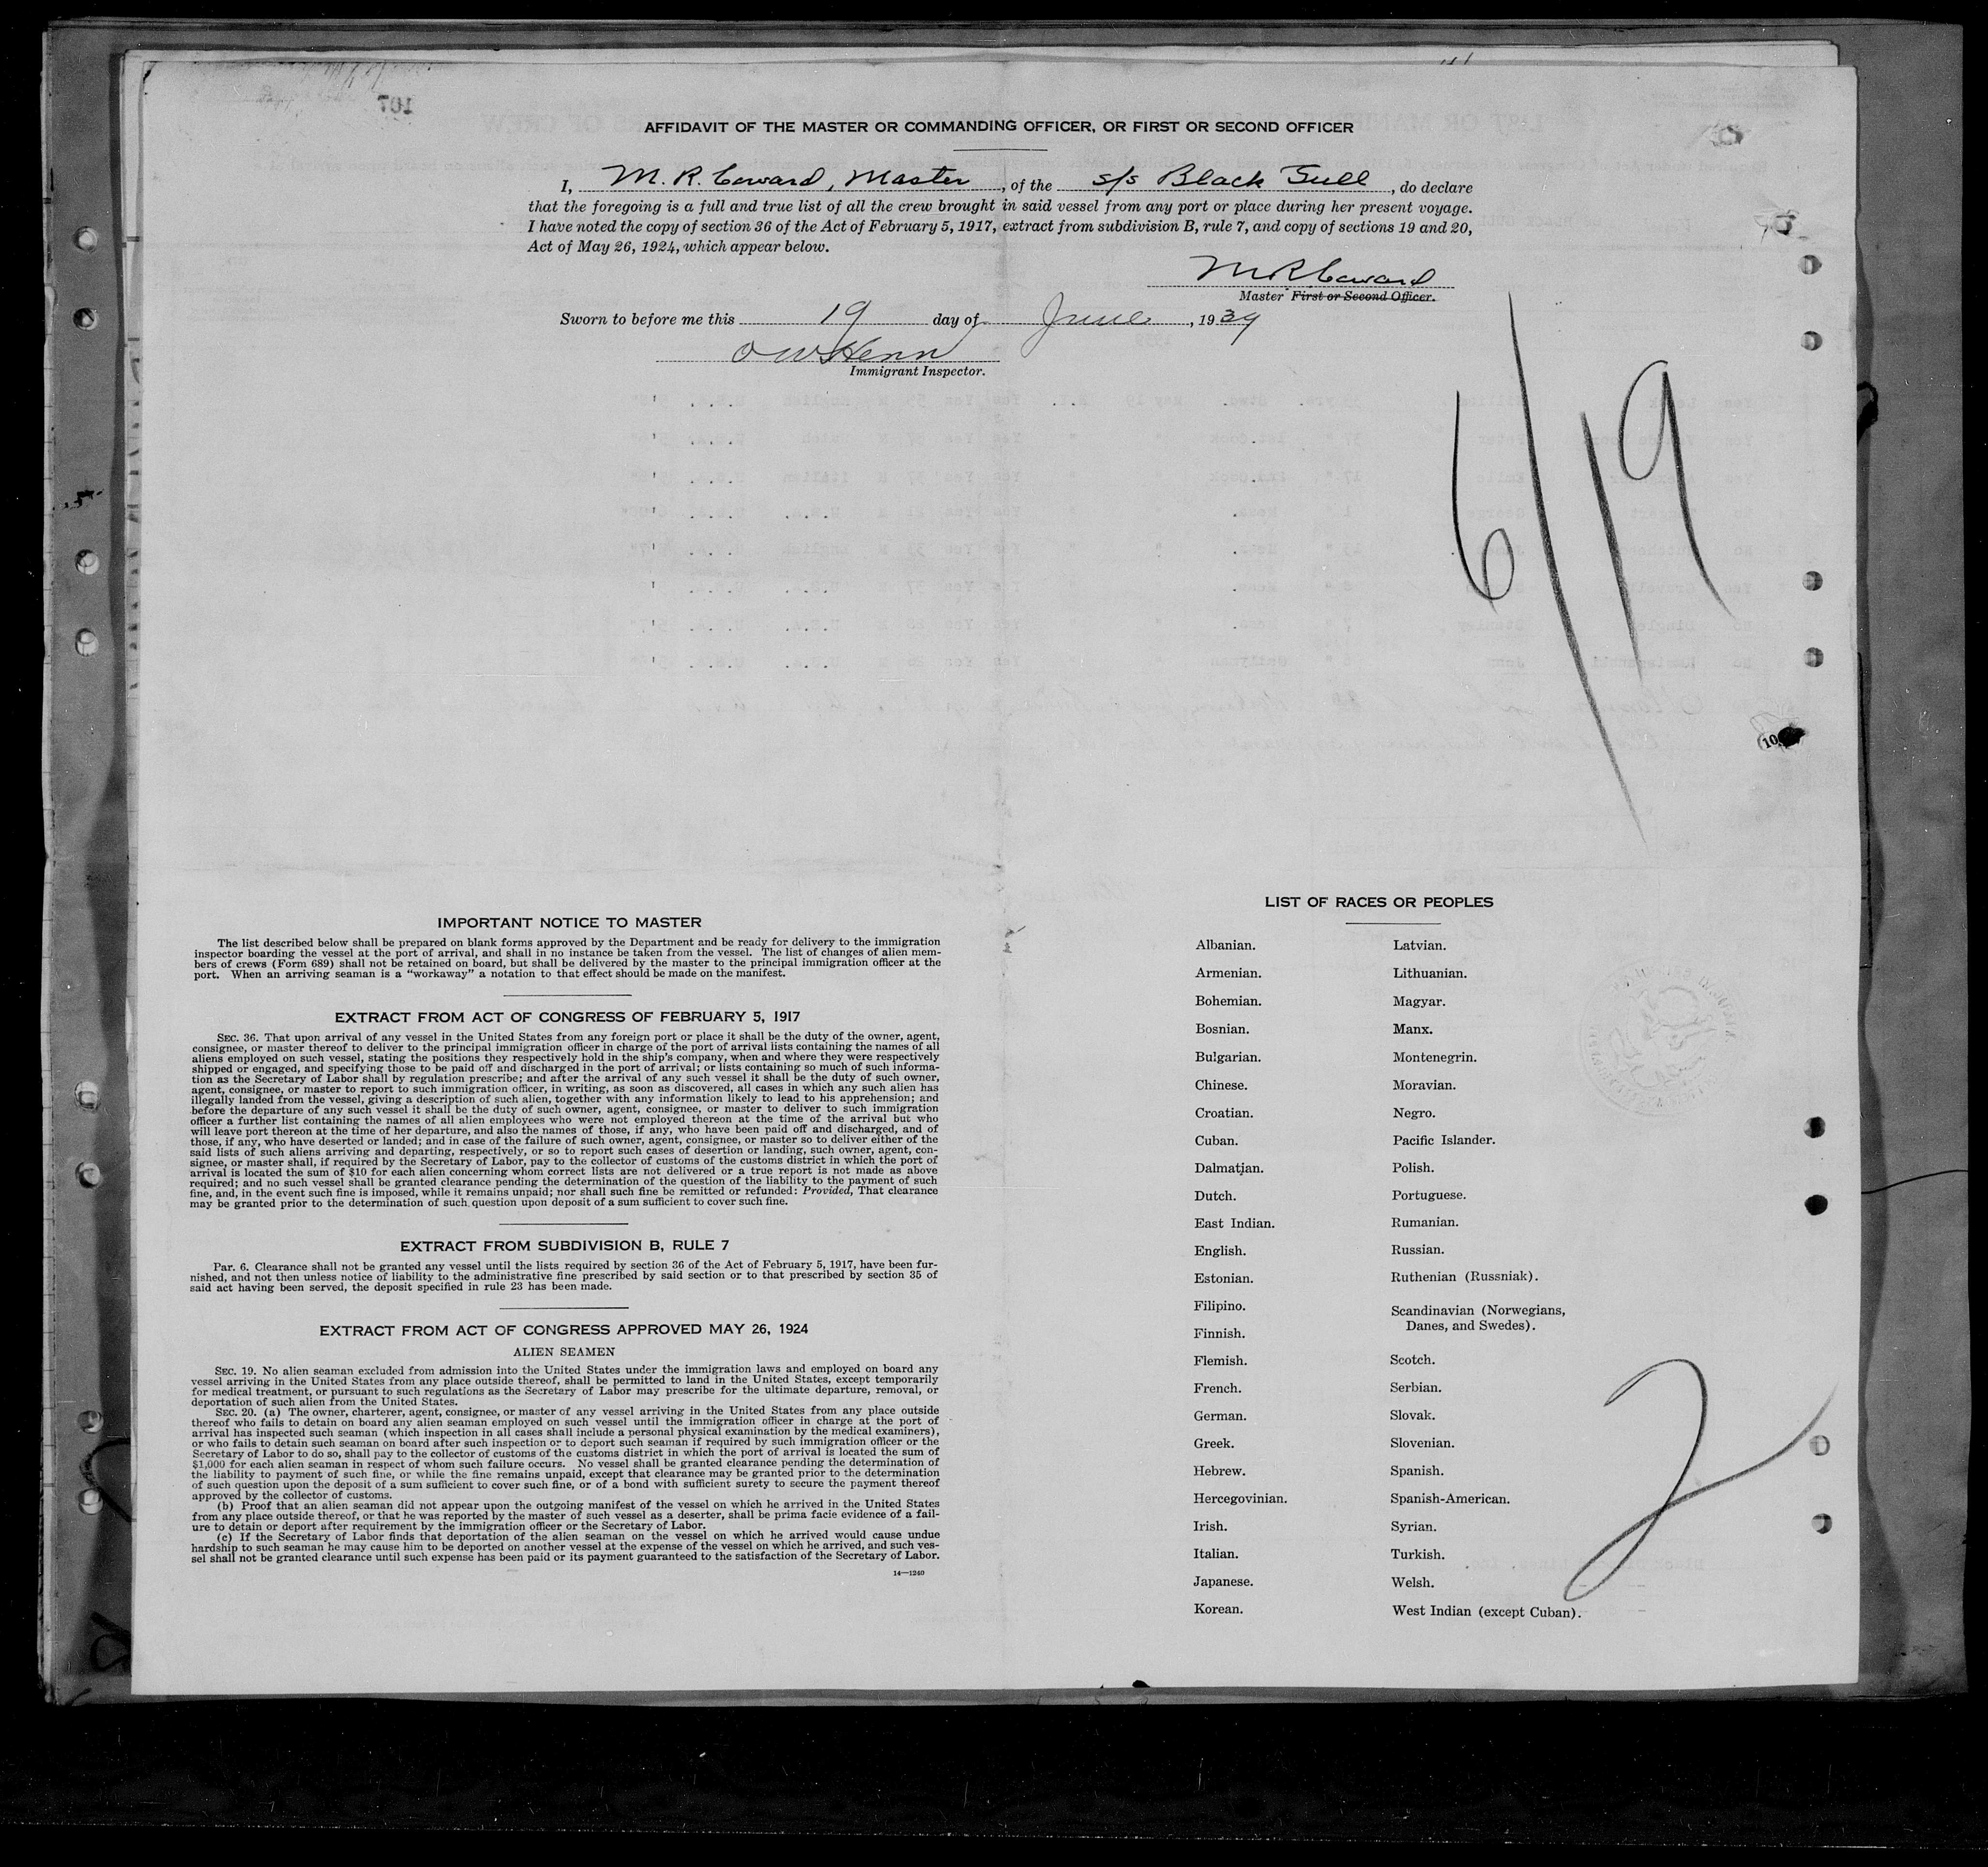 107
AFFIDAVIT OF THE MASTER OR COMMANDING OFFICER, OR FIRST OR SECOND OFFICER
I, M. R. Coward, Master, of the s/s Black Gull, do declare
that the foregoing is a full and true list of all the crew brought in said vessel from any port or place during her present voyage.
I have noted the copy of section 36 of the Act of February 5, 1917, extract from subdivision B, rule 7, and copy of sections 19 and 20,
Act of May 26, 1924, which appear below.
M R Coward
Master First or Second Officer.
Sworn to before me this 19 day of June, 1939
Immigrant Inspector.
6/19
IMPORTANT NOTICE TO MASTER
The list described below shall be prepared on blank forms approved by the Department and be ready for delivery to the immigration
inspector boarding the vessel at the port of arrival, and shall in no instance be taken from the vessel. The list of changes of alien mem-
bers of crews (Form 689) shall not be retained on board, but shall be delivered by the master to the principal immigration officer at the
port. When an arriving seaman is a "workaway" a notation to that effect should be made on the manifest.
EXTRACT FROM ACT OF CONGRESS OF FEBRUARY 5, 1917
SEC. 36. That upon arrival of any vessel in the United States from any foreign port or place it shall be the duty of the owner, agent,
consignee, or master thereof to deliver to the principal immigration officer in charge of the port of arrival lists containing the names of all
aliens employed on such vessel, stating the positions they respectively hold in the ship's company, when and where they were respectively
shipped or engaged, and specifying those to be paid off and discharged in the port of arrival; or lists containing so much of such informa-
tion as the Secretary of Labor shall by regulation prescribe; and after the arrival of any such vessel it shall be the duty of such owner,
agent, consignee, or master to report to such immigration officer, in writing, as soon as discovered, all cases in which any such alien has
illegally landed from the vessel, giving a description of such alien, together with any information likely to lead to his apprehension; and
before the departure of any such vessel it shall be the duty of such owner, agent, consignee, or master to deliver to such immigration
officer a further list containing the names of all alien employees who were not employed thereon at the time of the arrival but who
will leave port thereon at the time of her departure, and also the names of those, if any, who have been paid off and discharged, and of
those, if any, who have deserted or landed; and in case of the failure of such owner, agent, consignee, or master so to deliver either of the
said lists of such aliens arriving and departing, respectively, or so to report such cases of desertion or landing, such owner, agent, con-
signee, or master shall, if required by the Secretary of Labor, pay to the collector of customs of the customs district in which the port of
arrival is located the sum of $10 for each alien concerning whom correct lists are not delivered or a true report is not made as above
required; and no such vessel shall be granted clearance pending the determination of the question of the liability to the payment of such
fine, and, in the event such fine is imposed, while it remains unpaid; nor shall such fine be remitted or refunded: Provided, That clearance
may be granted prior to the determination of such question upon deposit of a sum sufficient to cover such fine.
EXTRACT FROM SUBDIVISION B, RULE 7
Par. 6. Clearance shall not be granted any vessel until the lists required by section 36 of the Act of February 5, 1917, have been fur-
nished, and not then unless notice of liability to the administrative fine prescribed by said section or to that prescribed by section 35 of
said act having been served, the deposit specified in rule 23 has been made.
EXTRACT FROM ACT OF CONGRESS APPROVED MAY 26, 1924
ALIEN SEAMEN
SEC. 19. No alien seaman excluded from admission into the United States under the immigration laws and employed on board any
vessel arriving in the United States from any place outside thereof, shall be permitted to land in the United States, except temporarily
for medical treatment, or pursuant to such regulations as the Secretary of Labor may prescribe for the ultimate departure, removal, or
deportation of such alien from the United States.
SEC. 20. (a) The owner, charterer, agent, consignee, or master of any vessel arriving in the United States from any place outside
thereof who fails to detain on board any alien seaman employed on such vessel until the immigration officer in charge at the port of
arrival has inspected such seaman (which inspection in all cases shall include a personal physical examination by the medical examiners),
or who fails to detain such seaman on board after such inspection or to deport such seaman if required by such immigration officer or the
Secretary of Labor to do so, shall pay to the collector of customs of the customs district in which the port of arrival is located the sum of
$1,000 for each alien seaman in respect of whom such failure occurs. No vessel shall be granted clearance pending the determination of
the liability to payment of such fine, or while the fine remains unpaid, except that clearance may be granted prior to the determination
of such question upon the deposit of a sum sufficient to cover such fine, or of a bond with sufficient surety to secure the payment thereof
approved by the collector of customs.
(b) Proof that an alien seaman did not appear upon the outgoing manifest of the vessel on which he arrived in the United States
from any place outside thereof, or that he was reported by the master of such vessel as a deserter, shall be prima facie evidence of a fail-
ure to detain or deport after requirement by the immigration officer or the Secretary of Labor.
(c) If the Secretary of Labor finds that deportation of the alien seaman on the vessel on which he arrived would cause undue
hardship to such seaman he may cause him to be deported on another vessel at the expense of the vessel on which he arrived, and such ves-
sel shall not be granted clearance until such expense has been paid or its payment guaranteed to the satisfaction of the Secretary of Labor.
14—1240
LIST OF RACES OR PEOPLES
Albanian.
Armenian.
Bohemian.
Bosnian.
Bulgarian.
Chinese.
Croatian.
Cuban.
Dalmatian.
Dutch.
East Indian.
English.
Estonian.
Filipino.
Finnish.
Flemish.
French.
German.
Greek.
Hebrew.
Hercegovinian.
Irish.
Italian.
Japanese.
Korean.
Latvian.
Lithuanian.
Magyar.
Manx.
Montenegrin.
Moravian.
Negro.
Pacific Islander.
Polish.
Portuguese.
Rumanian.
Russian.
Ruthenian (Russniak).
Scandinavian (Norwegians,
Danes, and Swedes).
Scotch.
Serbian.
Slovak.
Slovenian.
Spanish.
Spanish-American.
Syrian.
Turkish.
Welsh.
West Indian (except Cuban).
2